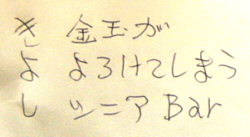 き 金玉が
よ よろけてしまう
し シニア Bar